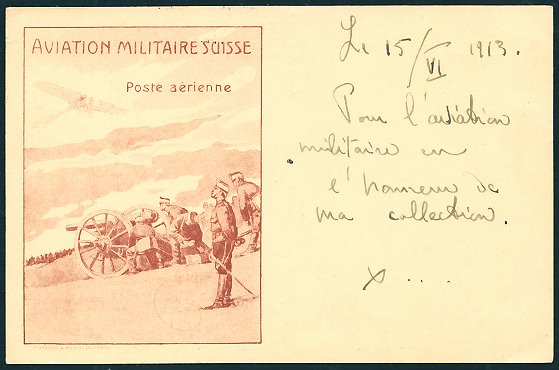 AVIATION MILITAIRE SUISSE
Poste aérienne
Le 15/VI 1913.
Pour l'aviation
militaire en
l'honneur de
ma collection.
x...